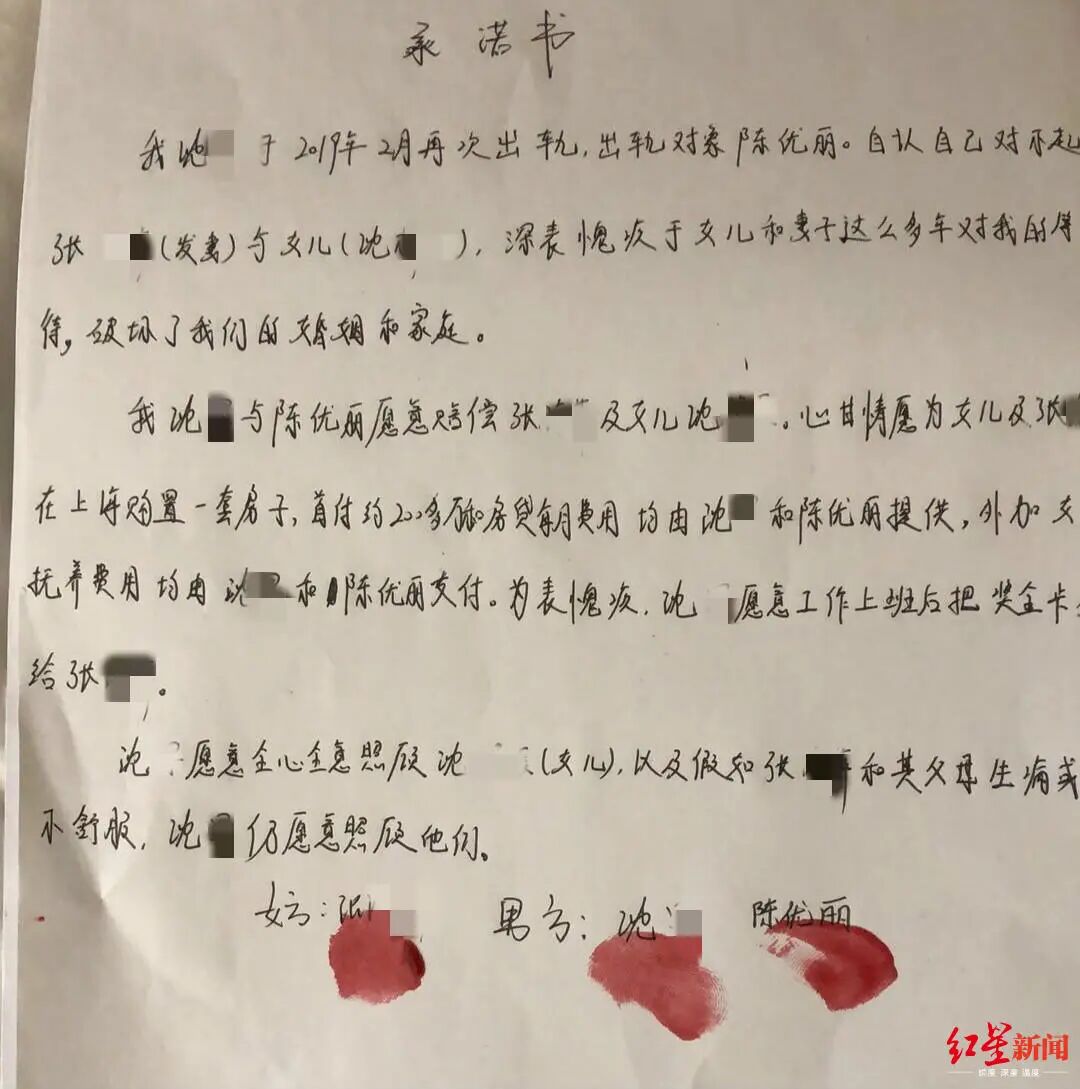 承诺书
我沈 于2019年2月再次出轨,出轨对象陈优丽。自认自己对不起
张 (发妻)与女儿(沈 ),深表愧疚于女儿和妻子这么多年对我的等
待,破坏了我们的婚姻和家庭。
我沈 与陈优丽愿意赔偿张 及女儿沈 。心甘情愿为女儿及张
在上海购置一套房子,首付约200多万和房贷每月费用均由沈 和陈优丽提供,外加女
抚养费用均由沈 和陈优丽支付。为表愧疚,沈 愿意工作上班后把奖金卡
给张 。
沈 愿意全心全意照顾沈 (女儿),以及假如张 和其父母生病或
不舒服,沈 仍愿意照顾他们。
女方:张 男方:沈 陈优丽
红星新闻
深度 温度